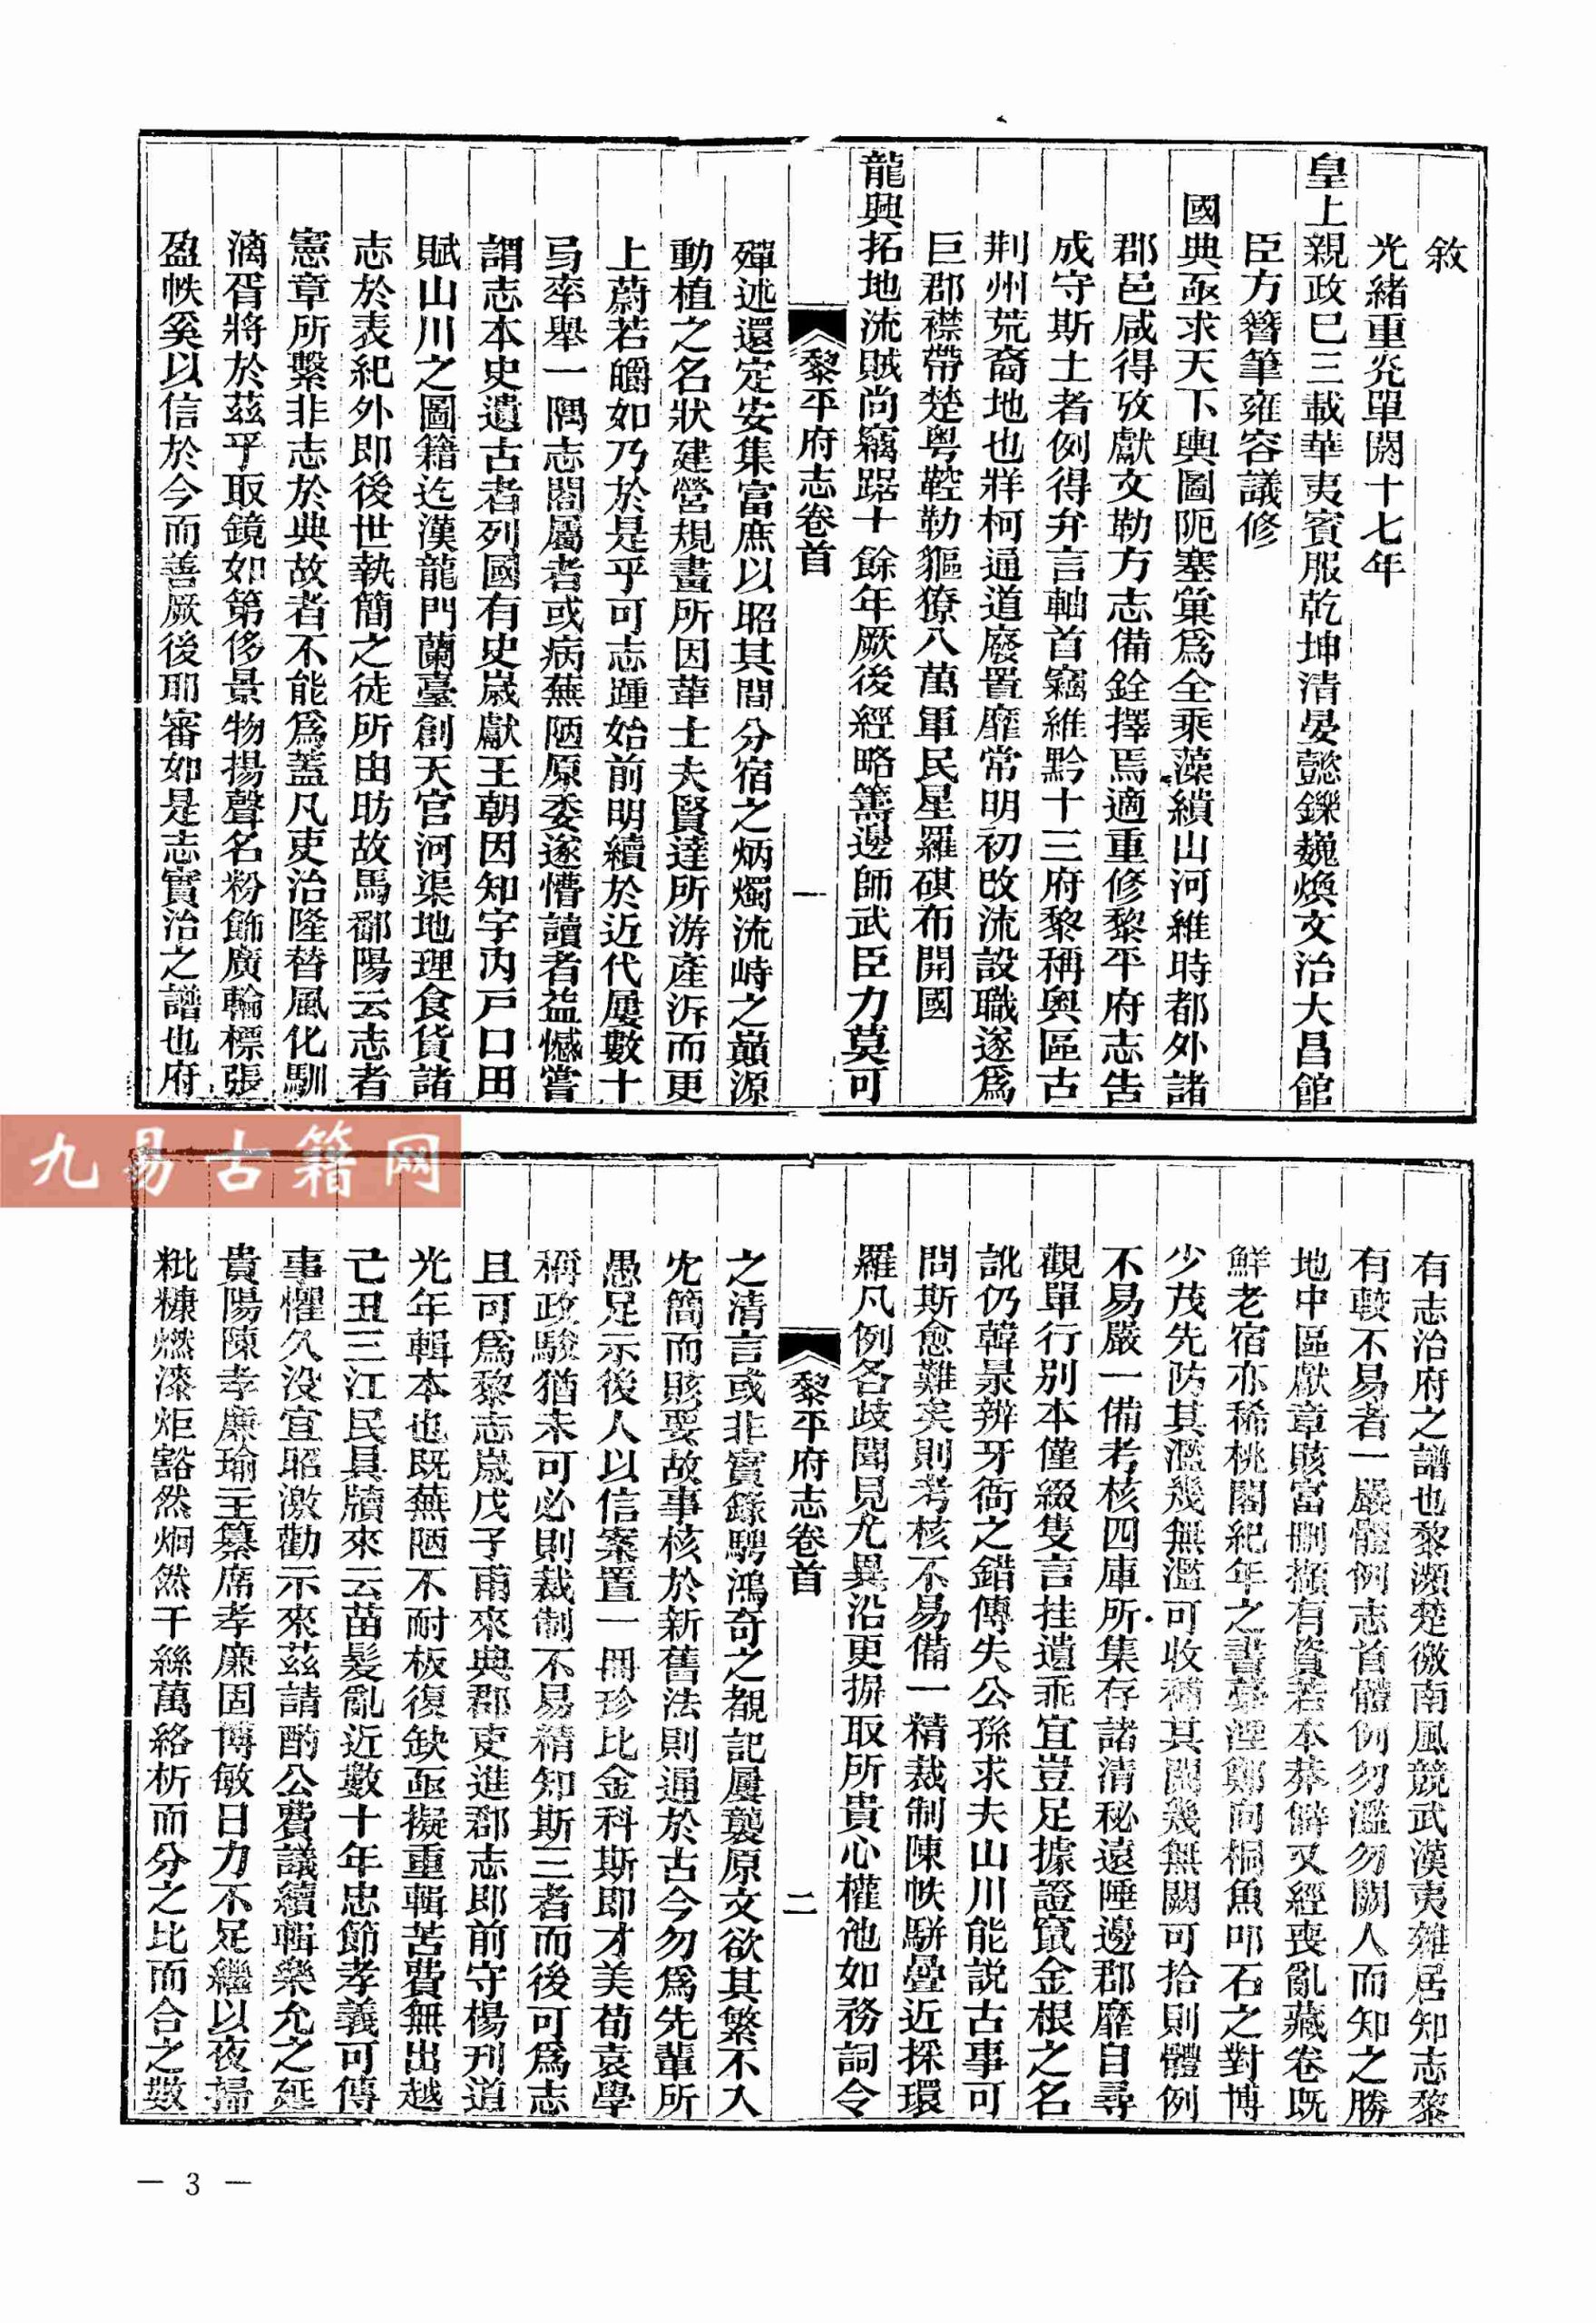 敘
光緒重光單閼十七年
皇上親政巳三載華夷賓服乾坤清晏懿鑠巍煥文治大昌館
臣方簪筆雍容議修
國典亟求天下輿圖阨塞彙爲全乘藻繢山河維時都外諸
郡邑咸得攷獻文勒方志備銓擇焉適重修黎平府志告
成守斯土者例得弁言軸首竊維黔十三府黎稱輿區古
荆州荒裔地也牂柯通道廢置靡常明初改流設職遂爲
巨郡襟帶楚粤鞚勒貙獠八萬軍民星羅碁布開國
龍興拓地流賊尚竊踞十餘年厥後經略籌邊師武臣力莫可
黎平府志卷首
一
殫述還定安集富庶以昭其間分宿之炳燭流峙之巔源
動植之名狀建營規畫所因葦士夫賢達所游產泝而更
上蔚若皭如乃於是乎可志踵始前明續於近代屢數十
舄率舉一隅志閤屬者或病蕪陋原委遂懵讀者益憾嘗
謂志本史遺古者列國有史嵗獻王朝因知字內戸口田
賦山川之圖籍迄漢龍門蘭臺創天官河渠地理食貨諸
志於表紀外即後世執簡之徒所由昉故馬鄱陽云志者
憲章所繫非志於典故者不能爲蓋凡吏治隆替風化馴
漓胥將於茲乎取鏡如第侈景物揚聲名粉飾廣輪標張
盈帙奚以信於今而善厥後耶審如是志實治之譜也府
有志治府之譜也黎瀕楚徼南風競武漢夷雜居知志黎
有較不易者一嚴體例志首體例勿濫勿闕人而知之勝
地中區獻章賅富刪擷有資若本莽僻又經喪亂藏卷既
鮮老宿亦稀桃閣紀年之書藁湮鄭向桐魚叩石之對博
少茂先防其濫幾無濫可收補其闕幾無闕可拾則體例
不易嚴一備考核四庫所集存諸清秘遠陲邊郡靡自尋
觀單行別本僅綴隻言挂遺乖宜豈足據證竄金根之名
訛仍韓景辨牙衙之錯傳失公孫求夫山川能説古事可
問斯愈難矣則考核不易備一精裁制陳帙駢曡近採環
羅凡例各歧聞見尤異沿更摒取所貴心權他如務詞令
黎平府志卷首
二
之清言或非實錄騁鴻奇之覩記屢襲原文欲其繁不入
宂簡而賅要故事核於新舊法則通於古今勿爲先輩所
愚足示後人以信案置一冊珍比金科斯即才美荀袁學
稱政駿猶未可必則裁制不易精知斯三者而後可爲志
且可爲黎志嵗戊子甫來典郡吏進郡志即前守楊刋道
光年輯本也既蕪陋不耐板復缺亟擬重輯苦費無出越
己丑三江民具牘來云苗髮亂近數十年忠節孝義可傳
事懼久没宜昭激勸示來茲請酌公費議續輯樂允之延
貴陽陳孝廉瑜主纂席孝廉固博敏日力不足繼以夜掃
粃糠燃漆炬豁然炯然千絲萬絡析而分之比而合之數
— 3 —
九易古籍网